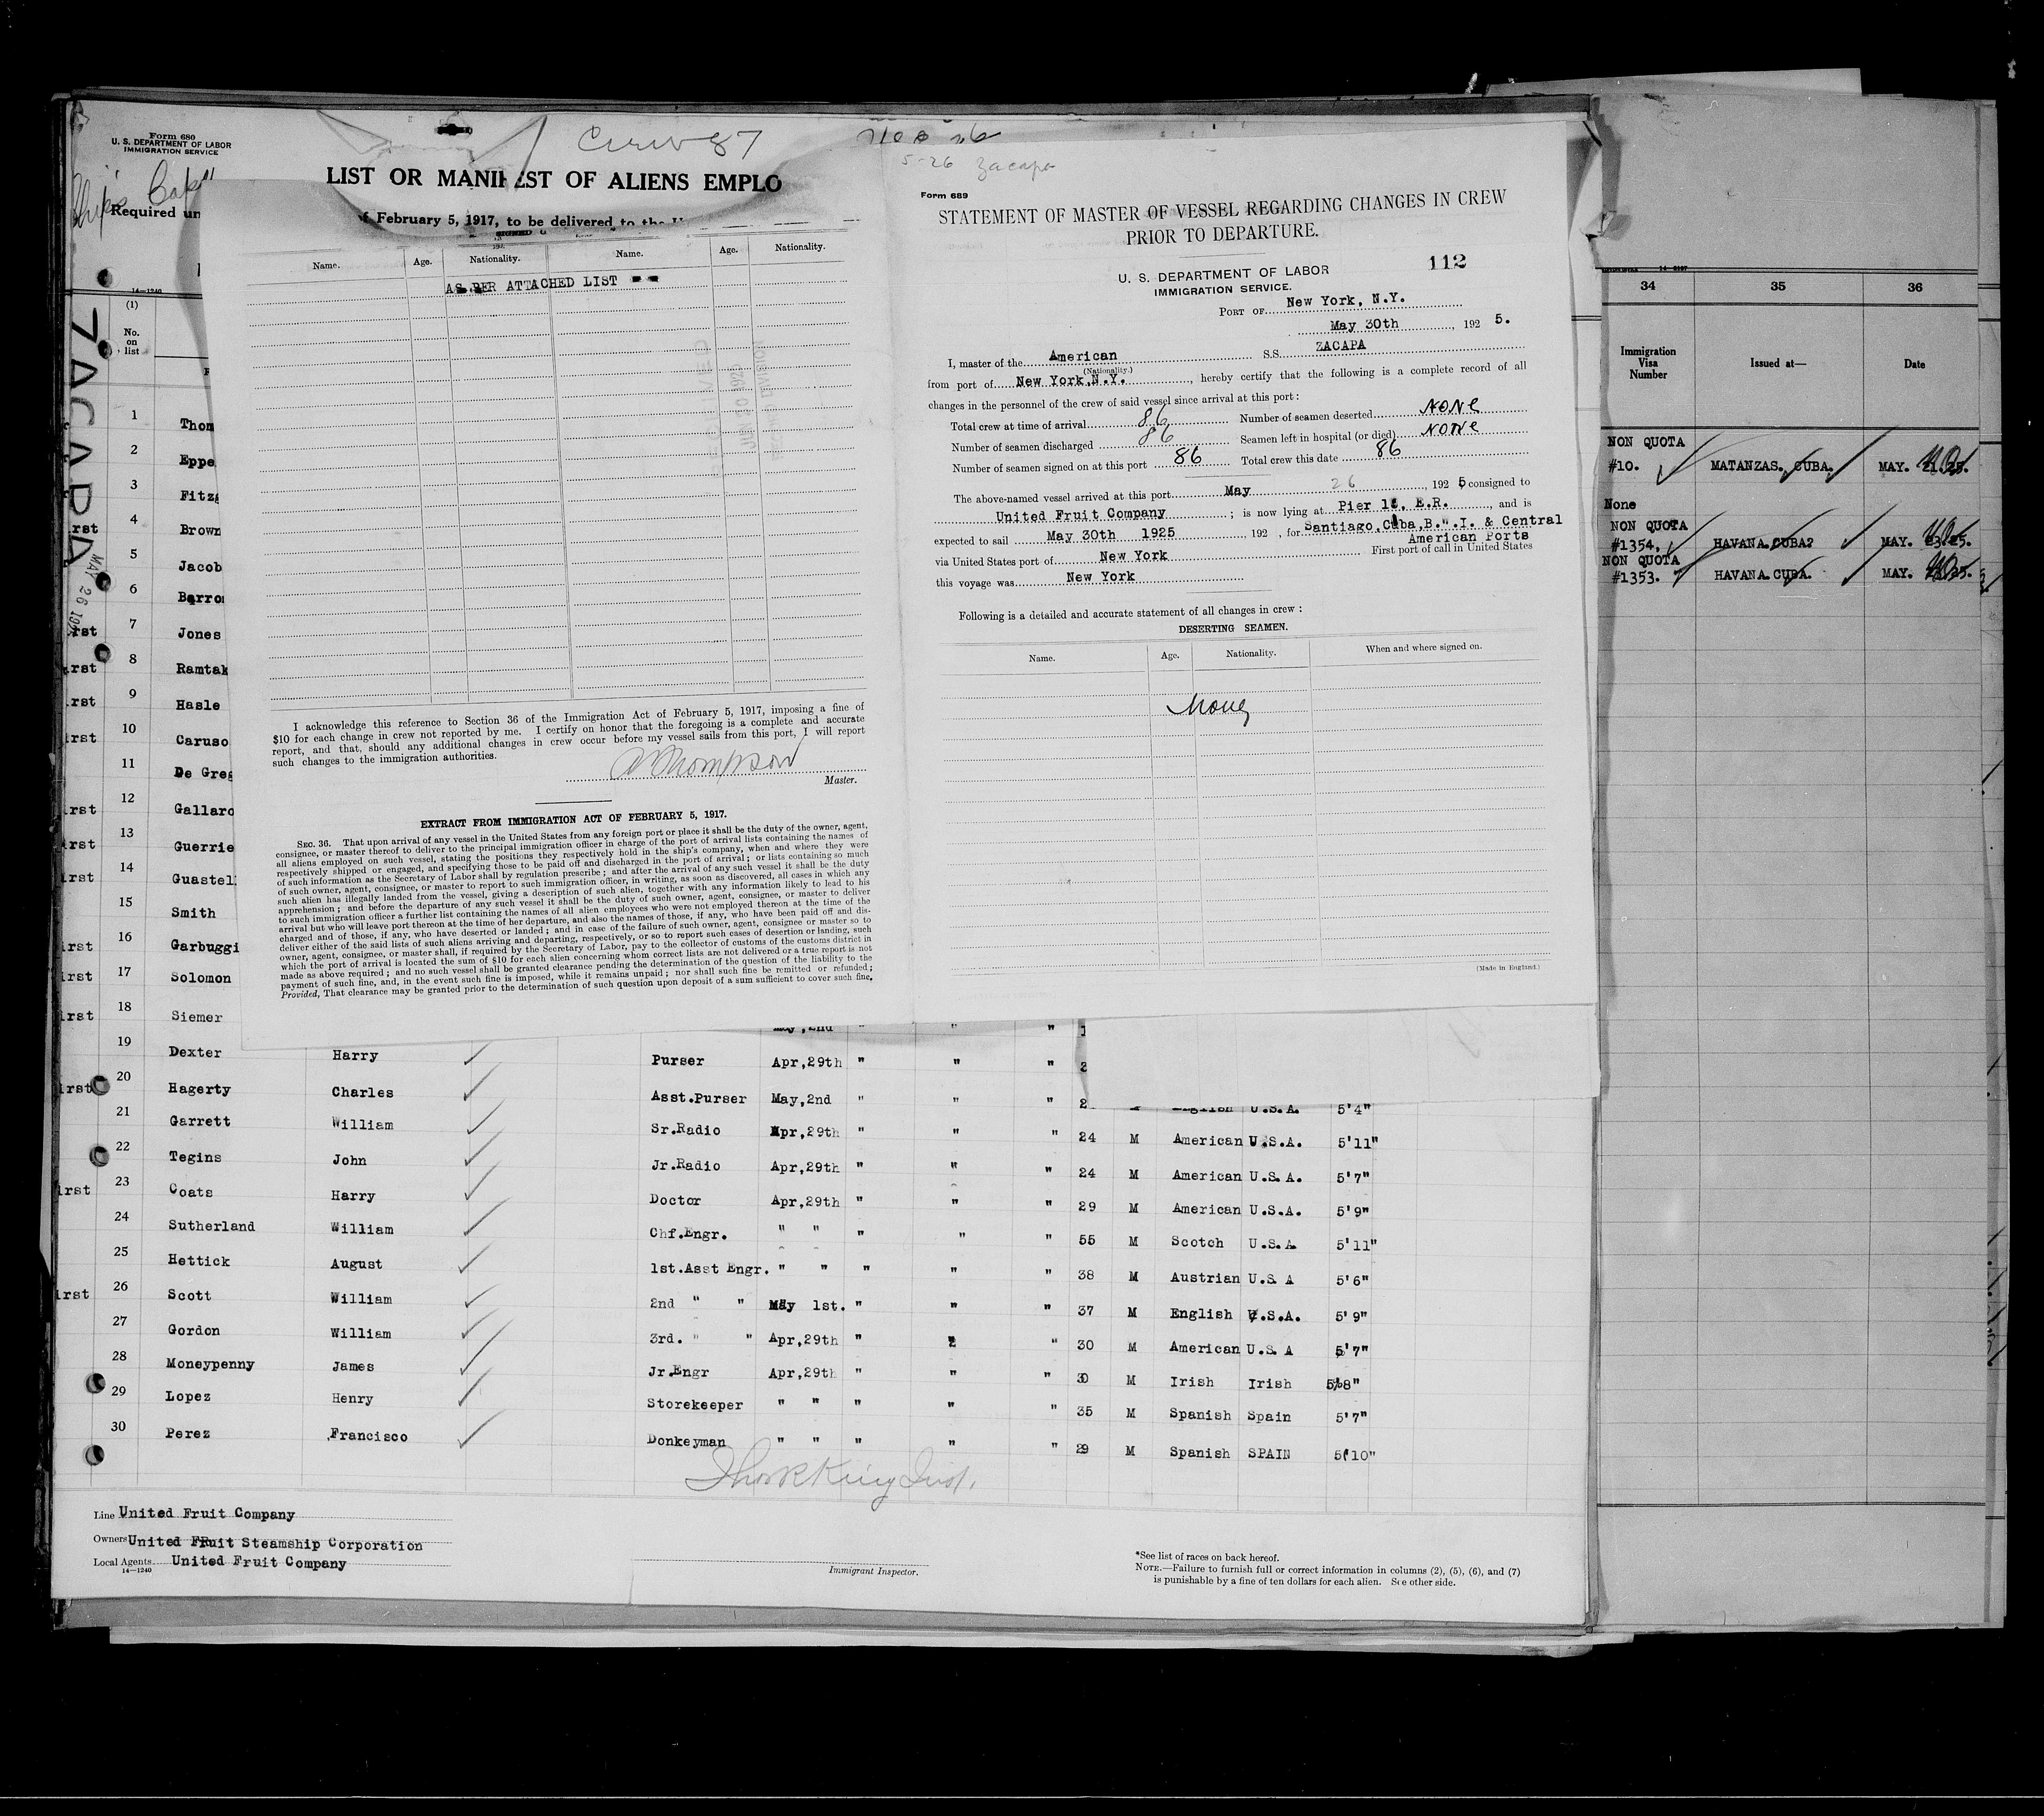 Form 680
U. S. DEPARTMENT OF LABOR
IMMIGRATION SERVICE
Crew 87
LIST OR MANIFEST OF ALIENS EMPLO
Required un
of February 5, 1917, to be delivered to the U
14—1240
(1)
No. on list
ZACAPA
MAY 26 192
1 Thom
2 Eppe
3 Fitzg
rst 4 Brown
5 Jacob
6 Barro
rst 7 Jones
irst 8 Ramtak
irst 9 Hasle
irst 10 Caruso
11 De Greg
irst 12 Gallaro
irst 13 Guerrie
irst 14 Guastel
15 Smith
irst 16 Garbuggi
irst 17 Solomon
irst 18 Siemer May,2nd " " "
19 Dexter Harry Purser Apr,29th " " "
irst 20 Hagerty Charles Asst.Purser May,2nd " " " English U.S.A. 5'4"
21 Garrett William Sr.Radio Apr,29th " " " 24 M American U.S.A. 5'11"
22 Tegins John Jr.Radio Apr,29th " " " 24 M American U.S.A. 5'7"
irst 23 Coats Harry Doctor Apr,29th " " " 29 M American U.S.A. 5'9"
24 Sutherland William Chf.Engr. " " " " " 55 M Scotch U.S.A 5'11"
25 Hettick August 1st.Asst Engr. " " " " " 38 M Austrian U.S A 5'6"
irst 26 Scott William 2nd " " May 1st. " " " 37 M English U.S.A. 5'9"
27 Gordon William 3rd. " " Apr,29th " " " 30 M American U.S. A 5'7"
28 Moneypenny James Jr.Engr Apr,29th " " " 30 M Irish Irish 5'8"
29 Lopez Henry Storekeeper " " " " " 35 M Spanish Spain 5'7"
30 Perez Francisco Donkeyman " " " " " 29 M Spanish SPAIN 5'10"
Line United Fruit Company
Owners United FRuit Steamship Corporation
Local Agents United Fruit Company
14—1240
Immigrant Inspector.
*See list of races on back hereof.
NOTE.—Failure to furnish full or correct information in columns (2), (5), (6), and (7)
is punishable by a fine of ten dollars for each alien. See other side.
Name. Age. Nationality. Name. Age. Nationality.
AS PER ATTACHED LIST
I acknowledge this reference to Section 36 of the Immigration Act of February 5, 1917, imposing a fine of
$10 for each change in crew not reported by me. I certify on honor that the foregoing is a complete and accurate
report, and that, should any additional changes in crew occur before my vessel sails from this port, I will report
such changes to the immigration authorities.
Thompson
Master.
EXTRACT FROM IMMIGRATION ACT OF FEBRUARY 5, 1917.
SEC. 36. That upon arrival of any vessel in the United States from any foreign port or place it shall be the duty of the owner, agent,
consignee, or master thereof to deliver to the principal immigration officer in charge of the port of arrival lists containing the names of
all aliens employed on such vessel, stating the positions they respectively hold in the ship's company, when and where they were
respectively shipped or engaged, and specifying those to be paid off and discharged in the port of arrival; or lists containing so much
of such information as the Secretary of Labor shall by regulation prescribe; and after the arrival of any such vessel it shall be the duty
of such owner, agent, consignee, or master to report to such immigration officer, in writing, as soon as discovered, all cases in which any
such alien has illegally landed from the vessel, giving a description of such alien, together with any information likely to lead to his
apprehension; and before the departure of any such vessel it shall be the duty of such owner, agent, consignee, or master to deliver
to such immigration officer a further list containing the names of all alien employees who were not employed thereon at the time of the
arrival but who will leave port thereon at the time of her departure, and also the names of those, if any, who have been paid off and dis-
charged and of those, if any, who have deserted or landed; and in case of the failure of such owner, agent, consignee or master so to
deliver either of the said lists of such aliens arriving and departing, respectively, or so to report such cases of desertion or landing, such
owner, agent, consignee, or master shall, if required by the Secretary of Labor, pay to the collector of customs of the customs district in
which the port of arrival is located the sum of $10 for each alien concerning whom correct lists are not delivered or a true report is not
made as above required; and no such vessel shall be granted clearance pending the determination of the question of the liability to the
payment of such fine, and, in the event such fine is imposed, while it remains unpaid; nor shall such fine be remitted or refunded;
Provided, That clearance may be granted prior to the determination of such question upon deposit of a sum sufficient to cover such fine.
5-26 Zacapa
Form 689
STATEMENT OF MASTER OF VESSEL REGARDING CHANGES IN CREW
PRIOR TO DEPARTURE.
112
U. S. DEPARTMENT OF LABOR
IMMIGRATION SERVICE.
PORT OF New York, N.Y.
May 30th, 192 5.
I, master of the American S.S. ZACAPA
(Nationality.)
from port of New York,N.Y., hereby certify that the following is a complete record of all
changes in the personnel of the crew of said vessel since arrival at this port:
Total crew at time of arrival 86 Number of seamen deserted NONE
Number of seamen discharged 86 Seamen left in hospital (or died) NONE
Number of seamen signed on at this port 86 Total crew this date 86
The above-named vessel arrived at this port May 26, 192 5 consigned to
United Fruit Company; is now lying at Pier 16, E.R., and is
expected to sail May 30th 1925, 192 , for Santiago,Cuba,B.W.I. & Central
American Ports
via United States port of New York First port of call in United States
this voyage was New York
Following is a detailed and accurate statement of all changes in crew:
DESERTING SEAMEN.
Name. Age. Nationality. When and where signed on.
None
(Made in England.)
34 35 36
Immigration Visa Number Issued at— Date
NON QUOTA
#10. MATANZAS. CUBA. MAY. 21.25.
None
NON QUOTA
#1354. HAVANA.CUBA? MAY. 23.25.
NON QUOTA
#1353. HAVANA.CUBA. MAY.